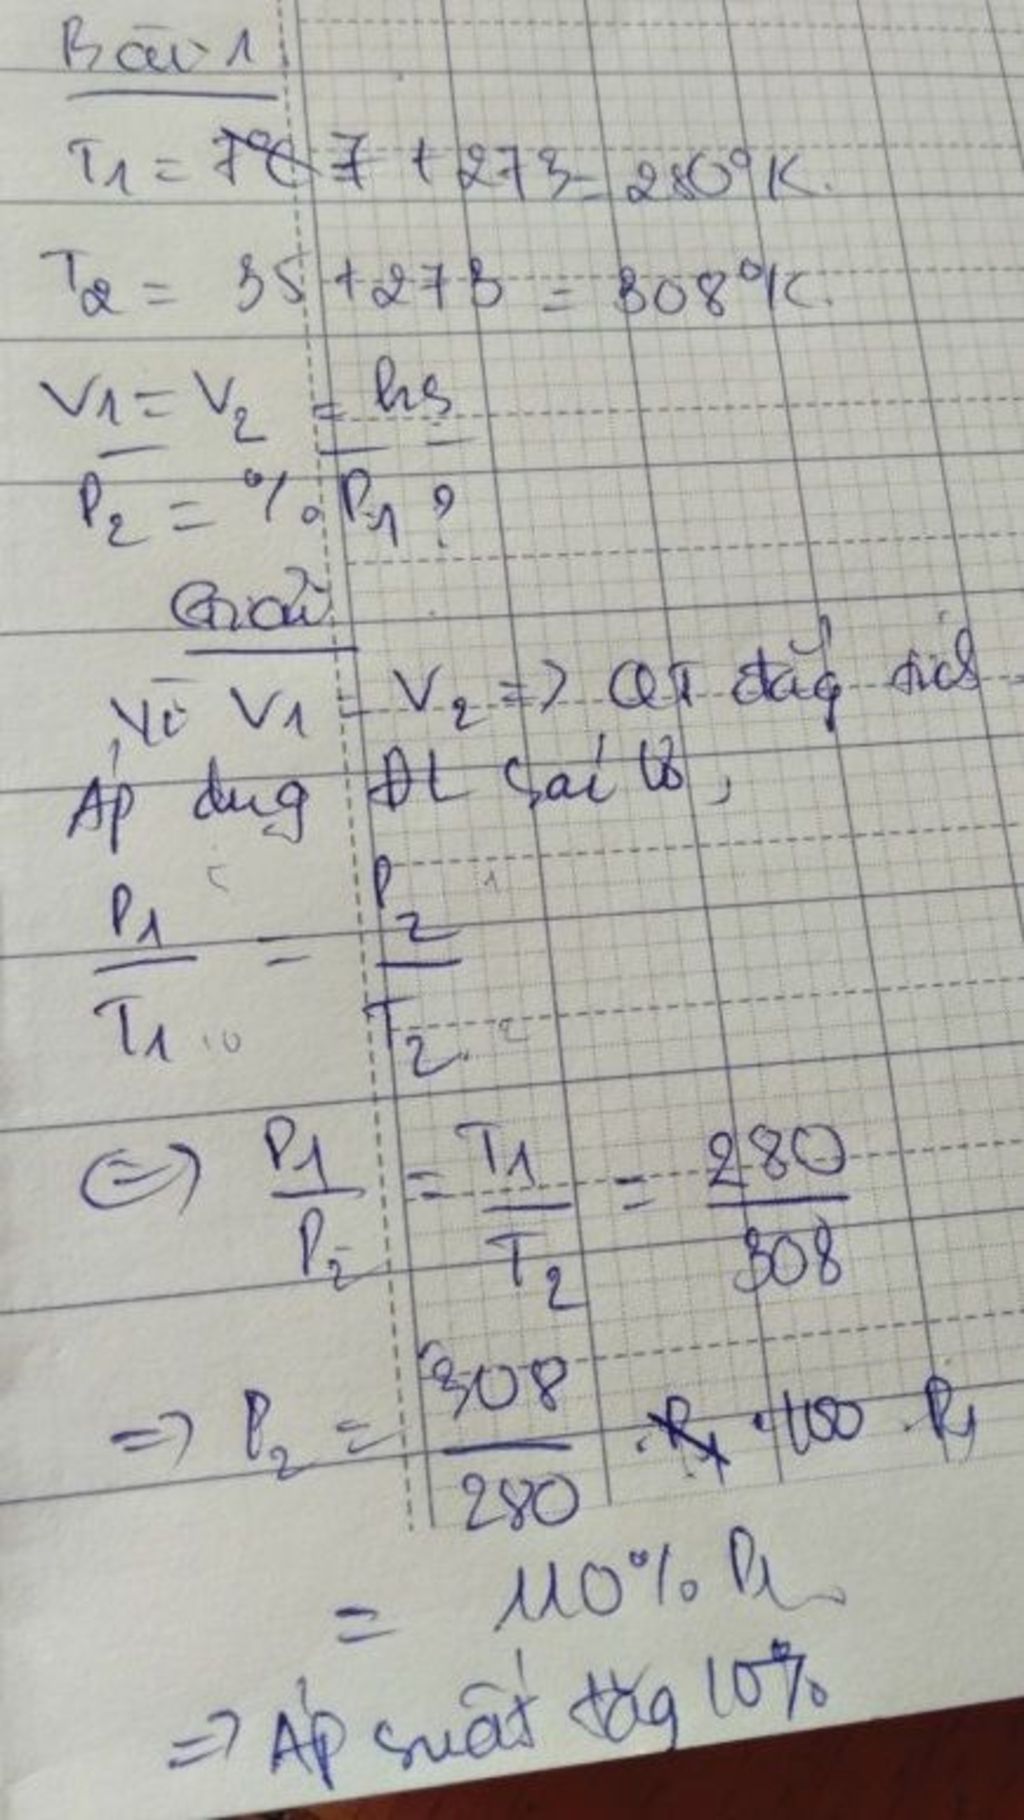 Bài 1
T1 = 7°C 7 + 273 = 280°K.
T2 = 35 + 273 = 308°K.
V1 = V2 = hs
P2 = % P1 ?
Giải
Vì V1 = V2 => QT đẳg tích
Áp dụg ĐL Sác lơ,
P1 = P2
T1 T2
<=> P1 = T1 = 280
P2 T2 308
=> P2 = 308 . P1 . 100 . P1
280
= 110% P1
=> Áp suất tăg 10%